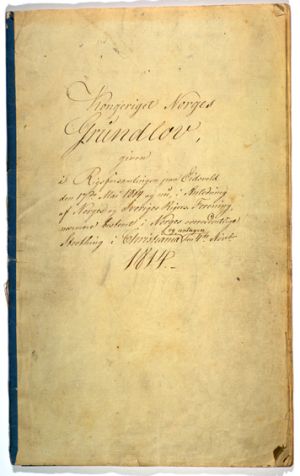 Kongeriget Norges
Grundlov,
given
i Rigsforsamlingen paa Eidsvold
den 17de Mai 1814 og nu i Anledning
af Norges og Sveriges Rigers Forening,
nærmere bestemt i Norges overordentlige
og antagen
Storthing i Christiania den 4de Novbr
1814.